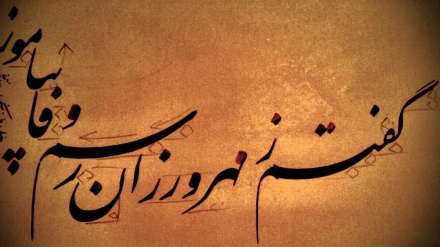 گفتم ز مهرورزان رسم وفا بیاموز